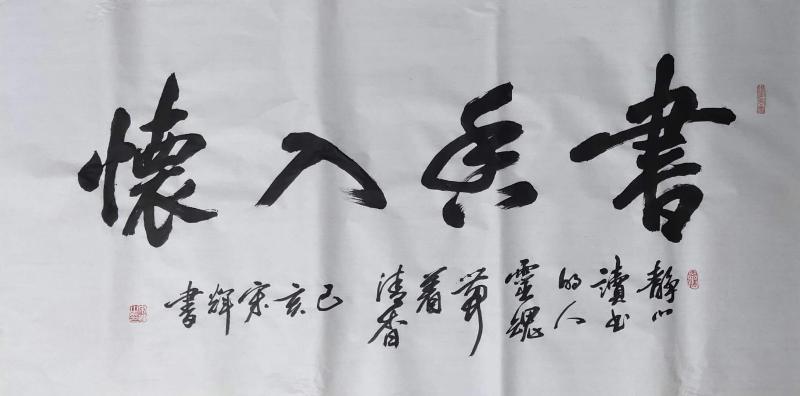 書香入懷
靜心
讀書
的人
靈魂
帶
着
清香
己亥
宋
輝
書